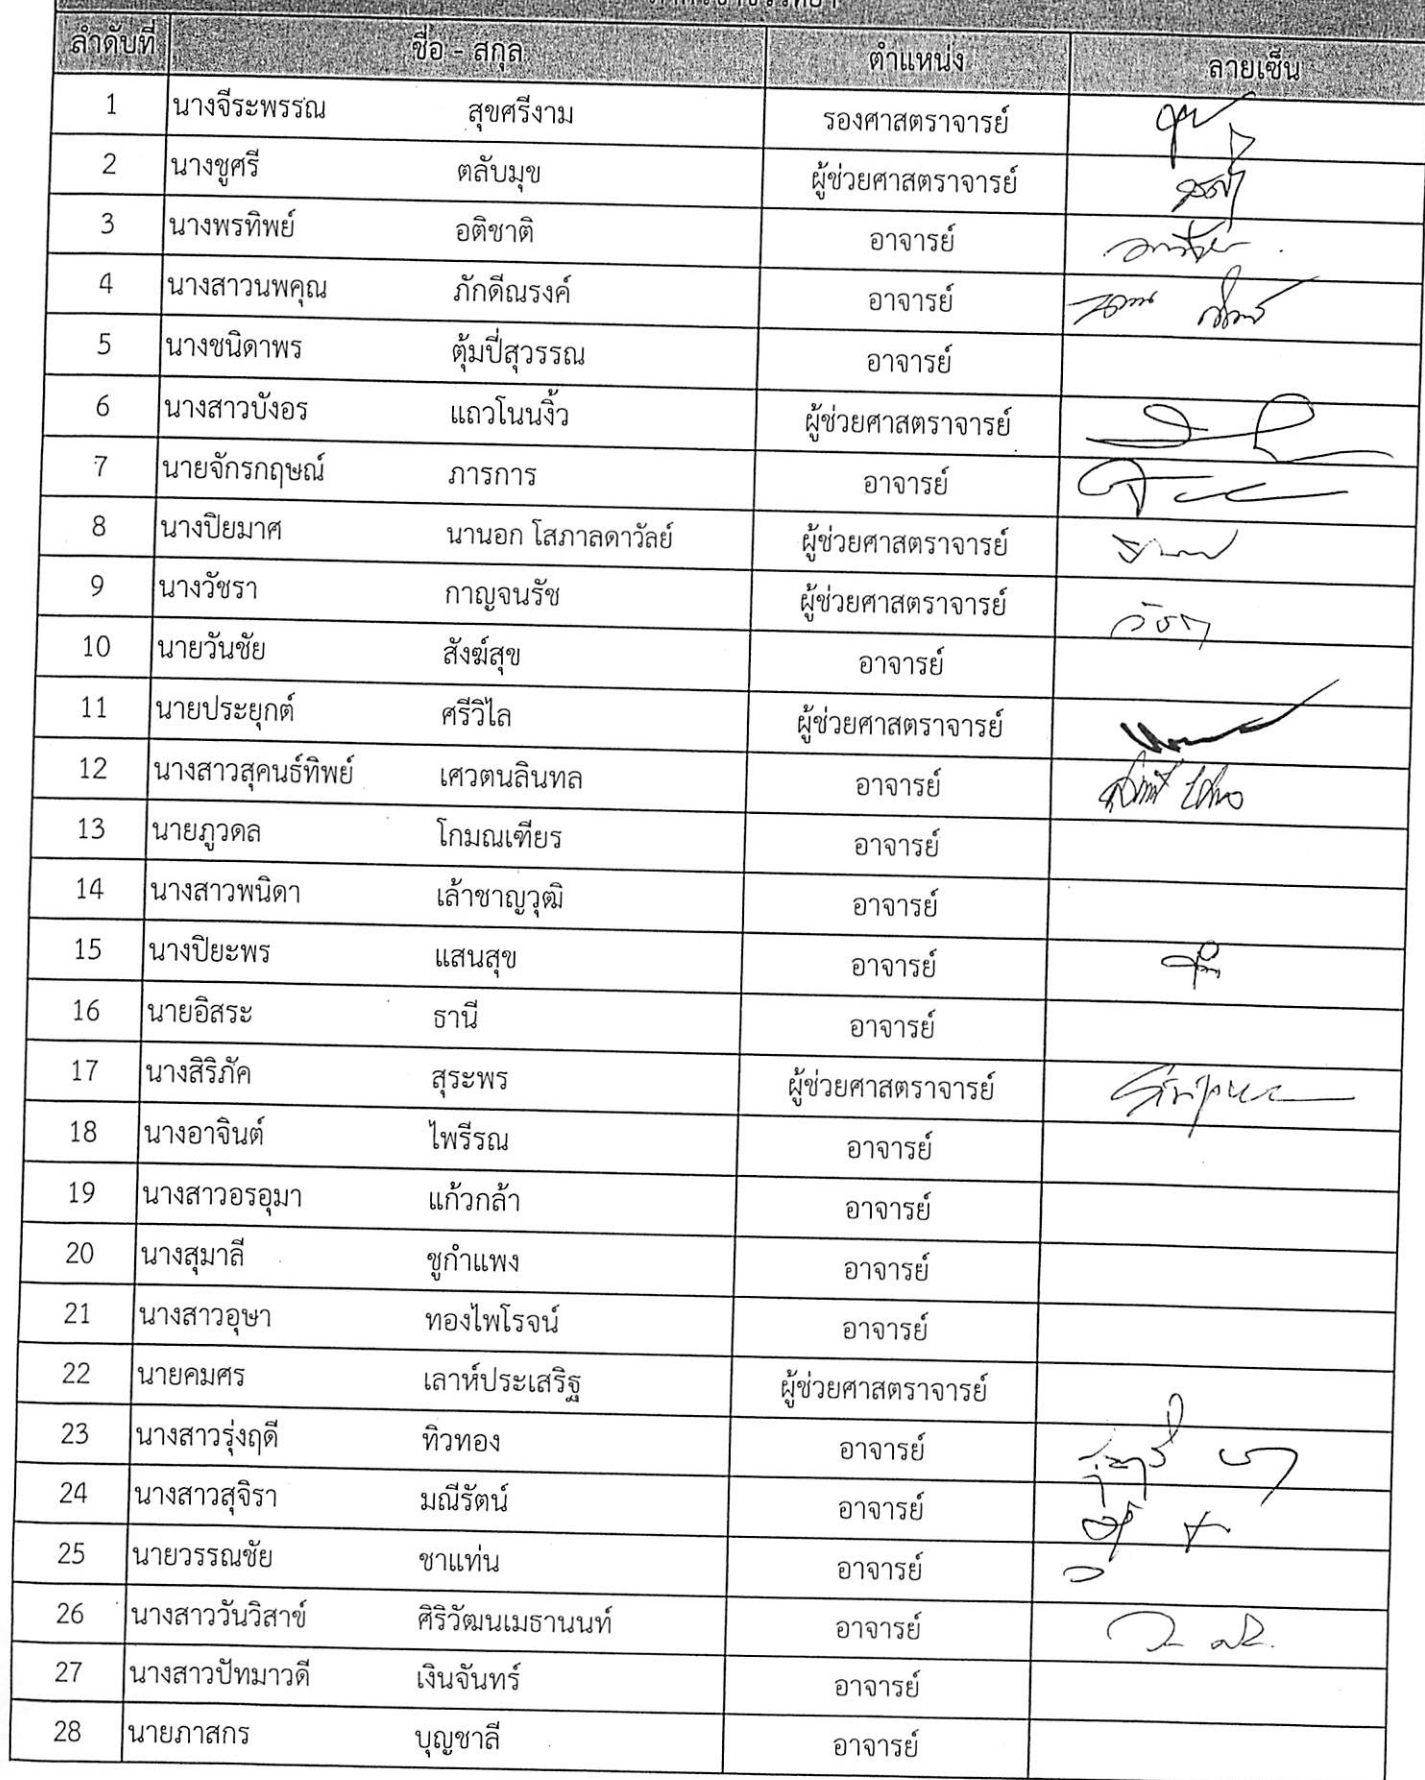 ลำดับที่ ชื่อ - สกุล ตำแหน่ง ลายเซ็น
1 นางจีระพรรณ สุขศรีงาม รองศาสตราจารย์
2 นางชูศรี ตลับมุข ผู้ช่วยศาสตราจารย์
3 นางพรทิพย์ อติชาติ อาจารย์
4 นางสาวนพคุณ ภักดีณรงค์ อาจารย์
5 นางชนิดาพร ตุ้มปี่สุวรรณ อาจารย์
6 นางสาวบังอร แถวโนนงิ้ว ผู้ช่วยศาสตราจารย์
7 นายจักรกฤษณ์ ภารการ อาจารย์
8 นางปิยมาศ นานอก โสภาลดาวัลย์ ผู้ช่วยศาสตราจารย์
9 นางวัชรา กาญจนรัช ผู้ช่วยศาสตราจารย์
10 นายวันชัย สังฆ์สุข อาจารย์
11 นายประยุกต์ ศรีวิไล ผู้ช่วยศาสตราจารย์
12 นางสาวสุคนธ์ทิพย์ เศวตนลินทล อาจารย์
13 นายภูวดล โกมณเฑียร อาจารย์
14 นางสาวพนิดา เล้าชาญวุฒิ อาจารย์
15 นางปิยะพร แสนสุข อาจารย์
16 นายอิสระ ธานี อาจารย์
17 นางสิริภัค สุระพร ผู้ช่วยศาสตราจารย์
18 นางอาจินต์ ไพรีรณ อาจารย์
19 นางสาวอรอุมา แก้วกล้า อาจารย์
20 นางสุมาลี ชูกำแพง อาจารย์
21 นางสาวอุษา ทองไพโรจน์ อาจารย์
22 นายคมศร เลาห์ประเสริฐ ผู้ช่วยศาสตราจารย์
23 นางสาวรุ่งฤดี ทิวทอง อาจารย์
24 นางสาวสุจิรา มณีรัตน์ อาจารย์
25 นายวรรณชัย ชาแท่น อาจารย์
26 นางสาววันวิสาข์ ศิริวัฒนเมธานนท์ อาจารย์
27 นางสาวปัทมาวดี เงินจันทร์ อาจารย์
28 นายภาสกร บุญชาลี อาจารย์